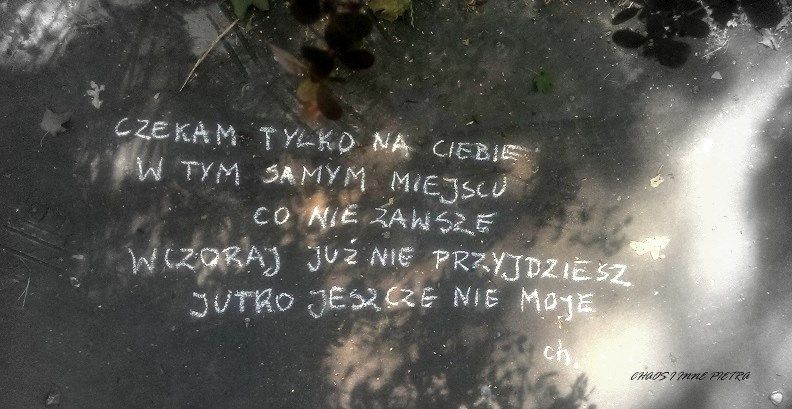 CZEKAM TYLKO NA CIEBIE
W TYM SAMYM MIEJSCU
CO NIE ZAWSZE
WCZORAJ JUŻ NIE PRZYJDZIESZ
JUTRO JESZCZE NIE MOJE
ch.
CHAOS I INNE PIETRA